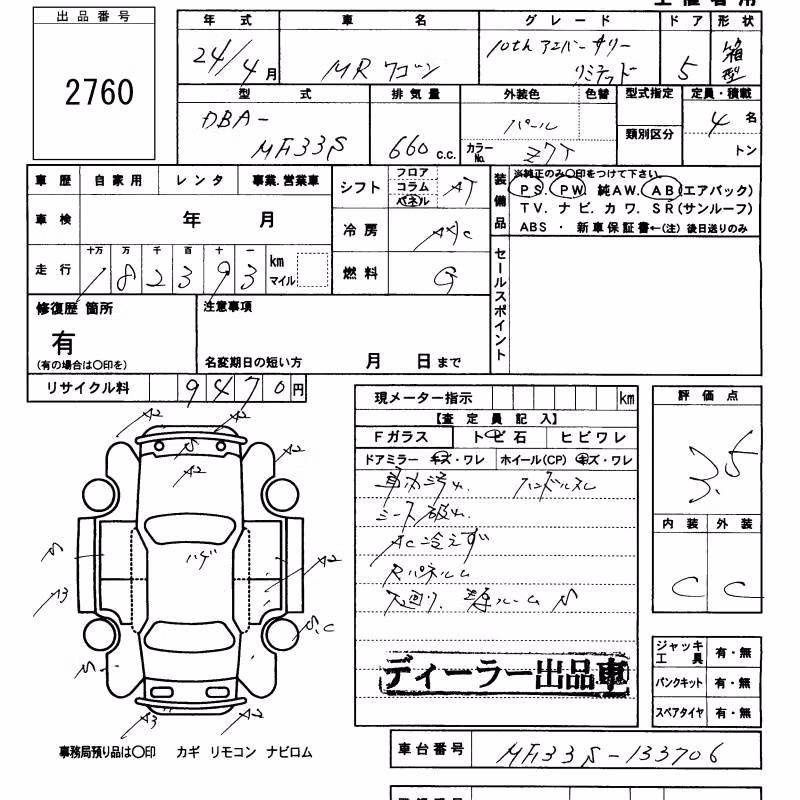 出品番号
2760
年式 車名 グレード ドア 形状
24/4月 MRワゴン 10th アニバーサリー リミテッド 5 箱型
型式 排気量 外装色 色替 型式指定 定員・積載
DBA-MF33S 660 c.c. パール カラーNo. Z7T 類別区分 4名 トン
車歴 自家用 レンタ 事業.営業車
シフト フロア コラム パネル AT
装備品 ※純正のみ〇印をつけて下さい。
PS. PW 純AW. AB(エアバック)
TV. ナビ. カワ. SR(サンルーフ)
ABS ・ 新車保証書←(注) 後日送りのみ
車検 年 月
冷房 A/C
走行 十万 万 千 百 十 一
182393 km マイル
燃料 G
セールスポイント
修復歴 箇所
有
(有の場合は〇印を)
注意事項
名変期日の短い方 月 日まで
リサイクル料 9470円
現メーター指示 km
【査定員記入】
Fガラス トビ石 ヒビワレ
ドアミラー キズ・ワレ ホイール(CP) キズ・ワレ
車内汚れ ハンドルスレ
シート破れ
AC冷えず
Rパネルム
下廻り、 ルーム S
ディーラー出品車
評価点
3.5
内装 外装
C C
A2 A2
S
A2
S
ハゲ
A2
A3
A2
S.C
S
A3 A2
ジャッキ工具 有・無
パンクキット 有・無
スペアタイヤ 有・無
事務局預り品は〇印 カギ リモコン ナビロム
車台番号 MF33S-133706